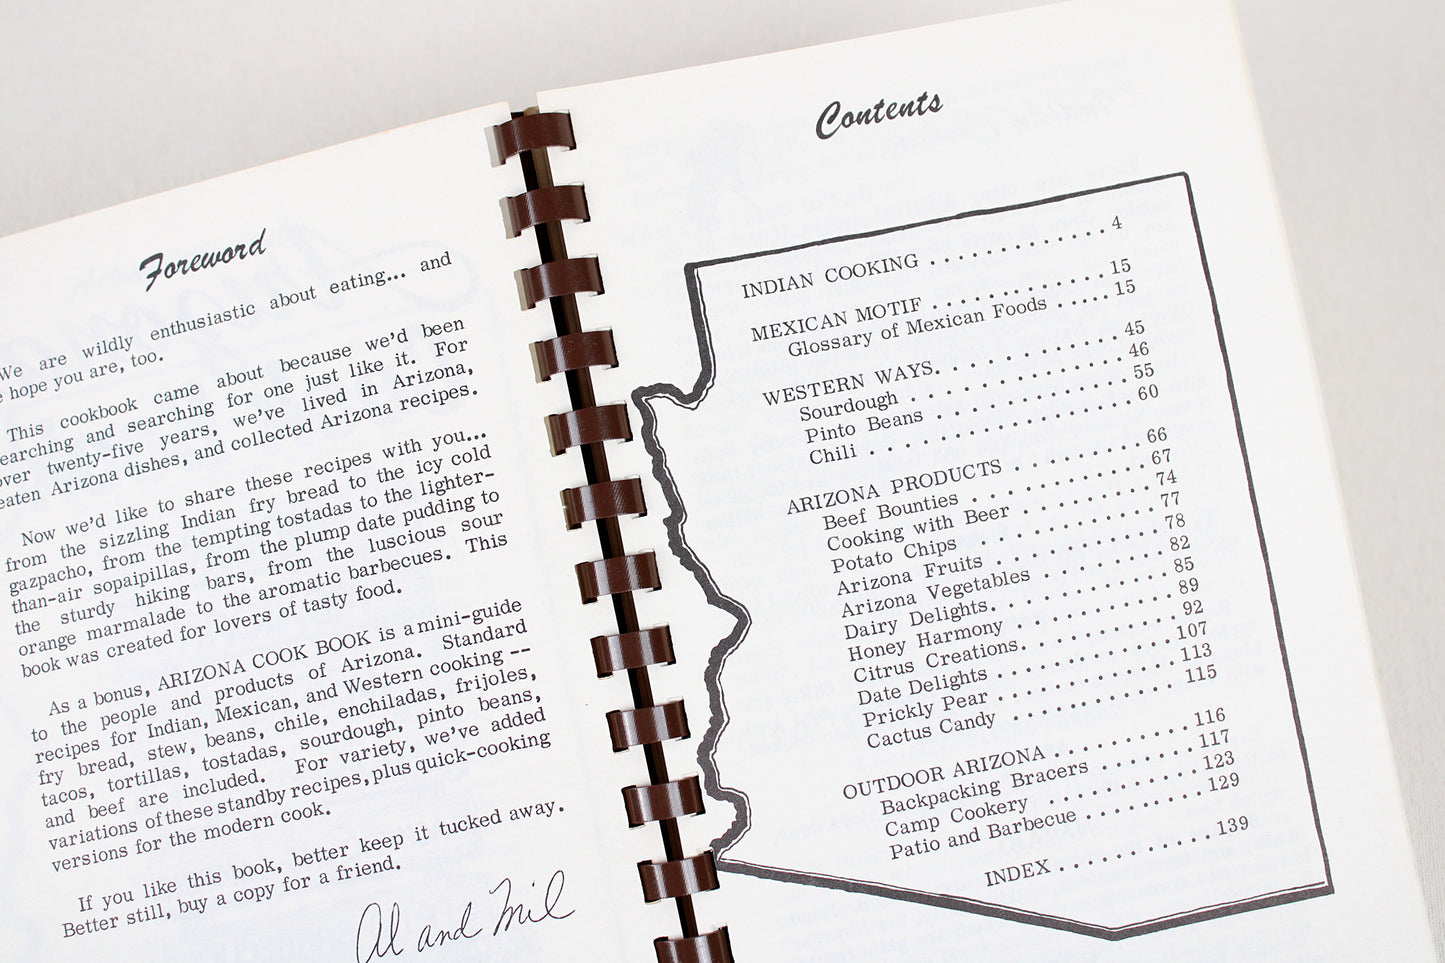 Foreword
We are wildly enthusiastic about eating... and
hope you are, too.
This cookbook came about because we'd been
searching and searching for one just like it. For
over twenty-five years, we've lived in Arizona,
eaten Arizona dishes, and collected Arizona recipes.
Now we'd like to share these recipes with you...
from the sizzling Indian fry bread to the icy cold
gazpacho, from the tempting tostadas to the lighter-
than-air sopaipillas, from the plump date pudding to
the sturdy hiking bars, from the luscious sour
orange marmalade to the aromatic barbecues. This
book was created for lovers of tasty food.
As a bonus, ARIZONA COOK BOOK is a mini-guide
to the people and products of Arizona. Standard
recipes for Indian, Mexican, and Western cooking --
fry bread, stew, beans, chile, enchiladas, frijoles,
tacos, tortillas, tostadas, sourdough, pinto beans,
and beef are included. For variety, we've added
variations of these standby recipes, plus quick-cooking
versions for the modern cook.
If you like this book, better keep it tucked away.
Better still, buy a copy for a friend.
Al and Mil
Contents
INDIAN COOKING . . . . . . . . . . . . 4
MEXICAN MOTIF . . . . . . . . . . . . 15
Glossary of Mexican Foods . . . . . 15
WESTERN WAYS. . . . . . . . . . . . 45
Sourdough . . . . . . . . . . . . . . 46
Pinto Beans . . . . . . . . . . . . . 55
Chili . . . . . . . . . . . . . . . . . 60
ARIZONA PRODUCTS . . . . . . . . 66
Beef Bounties . . . . . . . . . . . . 67
Cooking with Beer . . . . . . . . . 74
Potato Chips . . . . . . . . . . . . . 77
Arizona Fruits . . . . . . . . . . . . 78
Arizona Vegetables . . . . . . . . 82
Dairy Delights. . . . . . . . . . . . 85
Honey Harmony . . . . . . . . . . . 89
Citrus Creations. . . . . . . . . . . 92
Date Delights . . . . . . . . . . . . 107
Prickly Pear . . . . . . . . . . . . 113
Cactus Candy . . . . . . . . . . . . 115
OUTDOOR ARIZONA . . . . . . . . . 116
Backpacking Bracers . . . . . . . 117
Camp Cookery . . . . . . . . . . . 123
Patio and Barbecue . . . . . . . . 129
INDEX . . . . . . . . . . . 139